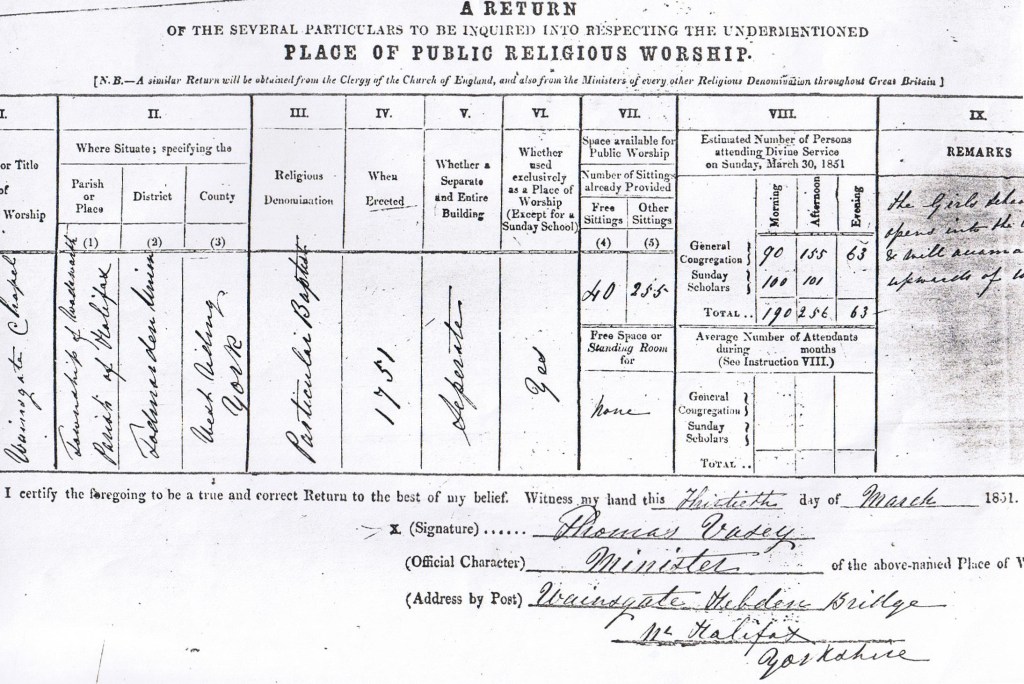 A RETURN
OF THE SEVERAL PARTICULARS TO BE INQUIRED INTO RESPECTING THE UNDERMENTIONED
PLACE OF PUBLIC RELIGIOUS WORSHIP.
[N.B.—A similar Return will be obtained from the Clergy of the Church of England, and also from the Ministers of every other Religious Denomination throughout Great Britain]
I.
or Title
of
Worship
Wainsgate Chapel
II.
Where Situate; specifying the
Parish
or
Place
(1)
Township of Wadsworth
Parish of Halifax
District
(2)
Todmorden Union
County
(3)
West Riding
York
III.
Religious
Denomination
Particular Baptist
IV.
When
Erected
1751
V.
Whether a
Separate
and Entire
Building
Seperate
VI.
Whether
used
exclusively
as a Place of
Worship
(Except for a
Sunday School)
Yes
VII.
Space available for
Public Worship
Number of Sittings
already Provided
Free
Sittings
(4)
40
Other
Sittings
(5)
255
Free Space or
Standing Room
for
None
VIII.
Estimated Number of Persons
attending Divine Service
on Sunday, March 30, 1851
Morning Afternoon Evening
General
Congregation } 90 155 63
Sunday
Scholars } 100 101
TOTAL .. 190 256 63
Average Number of Attendants
during months
(See Instruction VIII.)
General
Congregation }
Sunday
Scholars }
TOTAL ..
IX.
REMARKS
the Girls
opens into the
& will
upwards of
I certify the foregoing to be a true and correct Return to the best of my belief. Witness my hand this Thirtieth day of March 1851.
X. (Signature) ...... Thomas Vasey
(Official Character) Minister of the above-named Place of W
(Address by Post) Wainsgate Hebden Bridge
Nr Halifax
Yorkshire